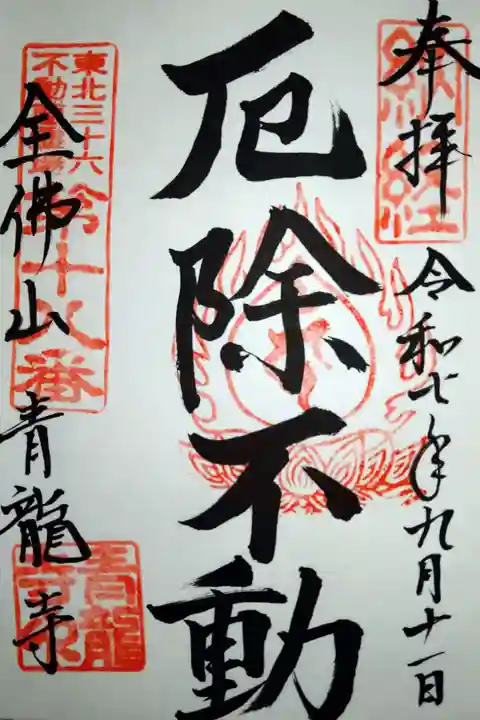 奉拝
納経
令和七年九月十一日
厄除不動
東北三十六
不動尊霊場
第十八番
金佛山 青龍寺
青龍寺印